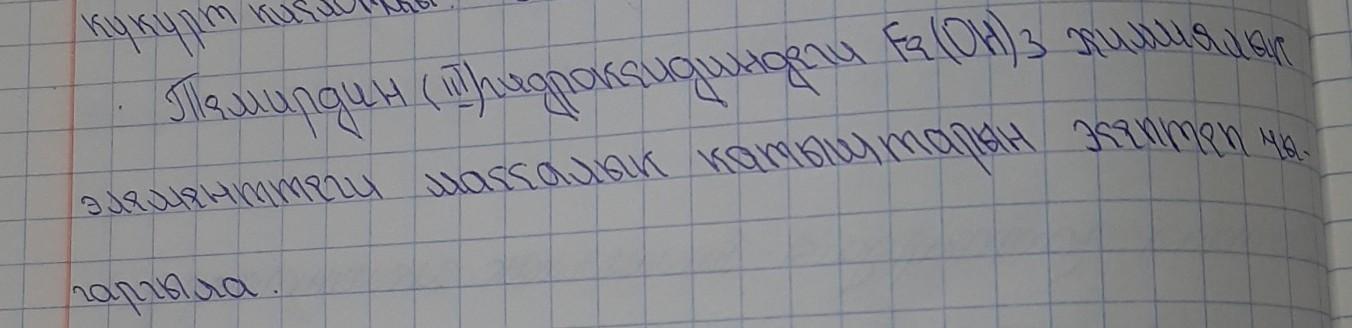 күкүрт
Темирдин (III) гидроксидиндеги Fe(OH)3 химиялык
элементтеги массалык катыштарын эсептеп чы-
гаргыла.